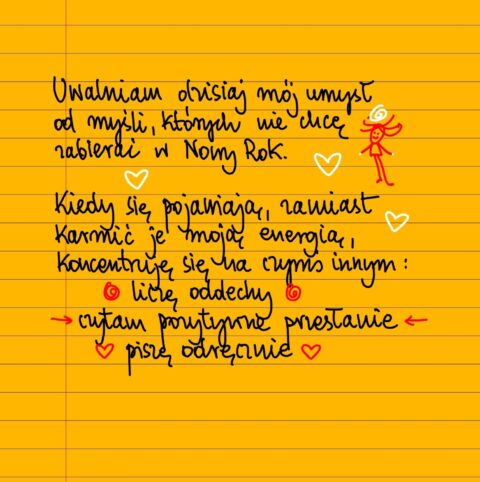 Uwalniam dzisiaj mój umysł
od myśli, których nie chcę
zabierać w Nowy Rok.
Kiedy się pojawiają, zamiast
karmić je moją energią,
koncentruję się na czymś innym:
liczę oddechy
czytam pozytywne przesłanie
piszę odręcznie